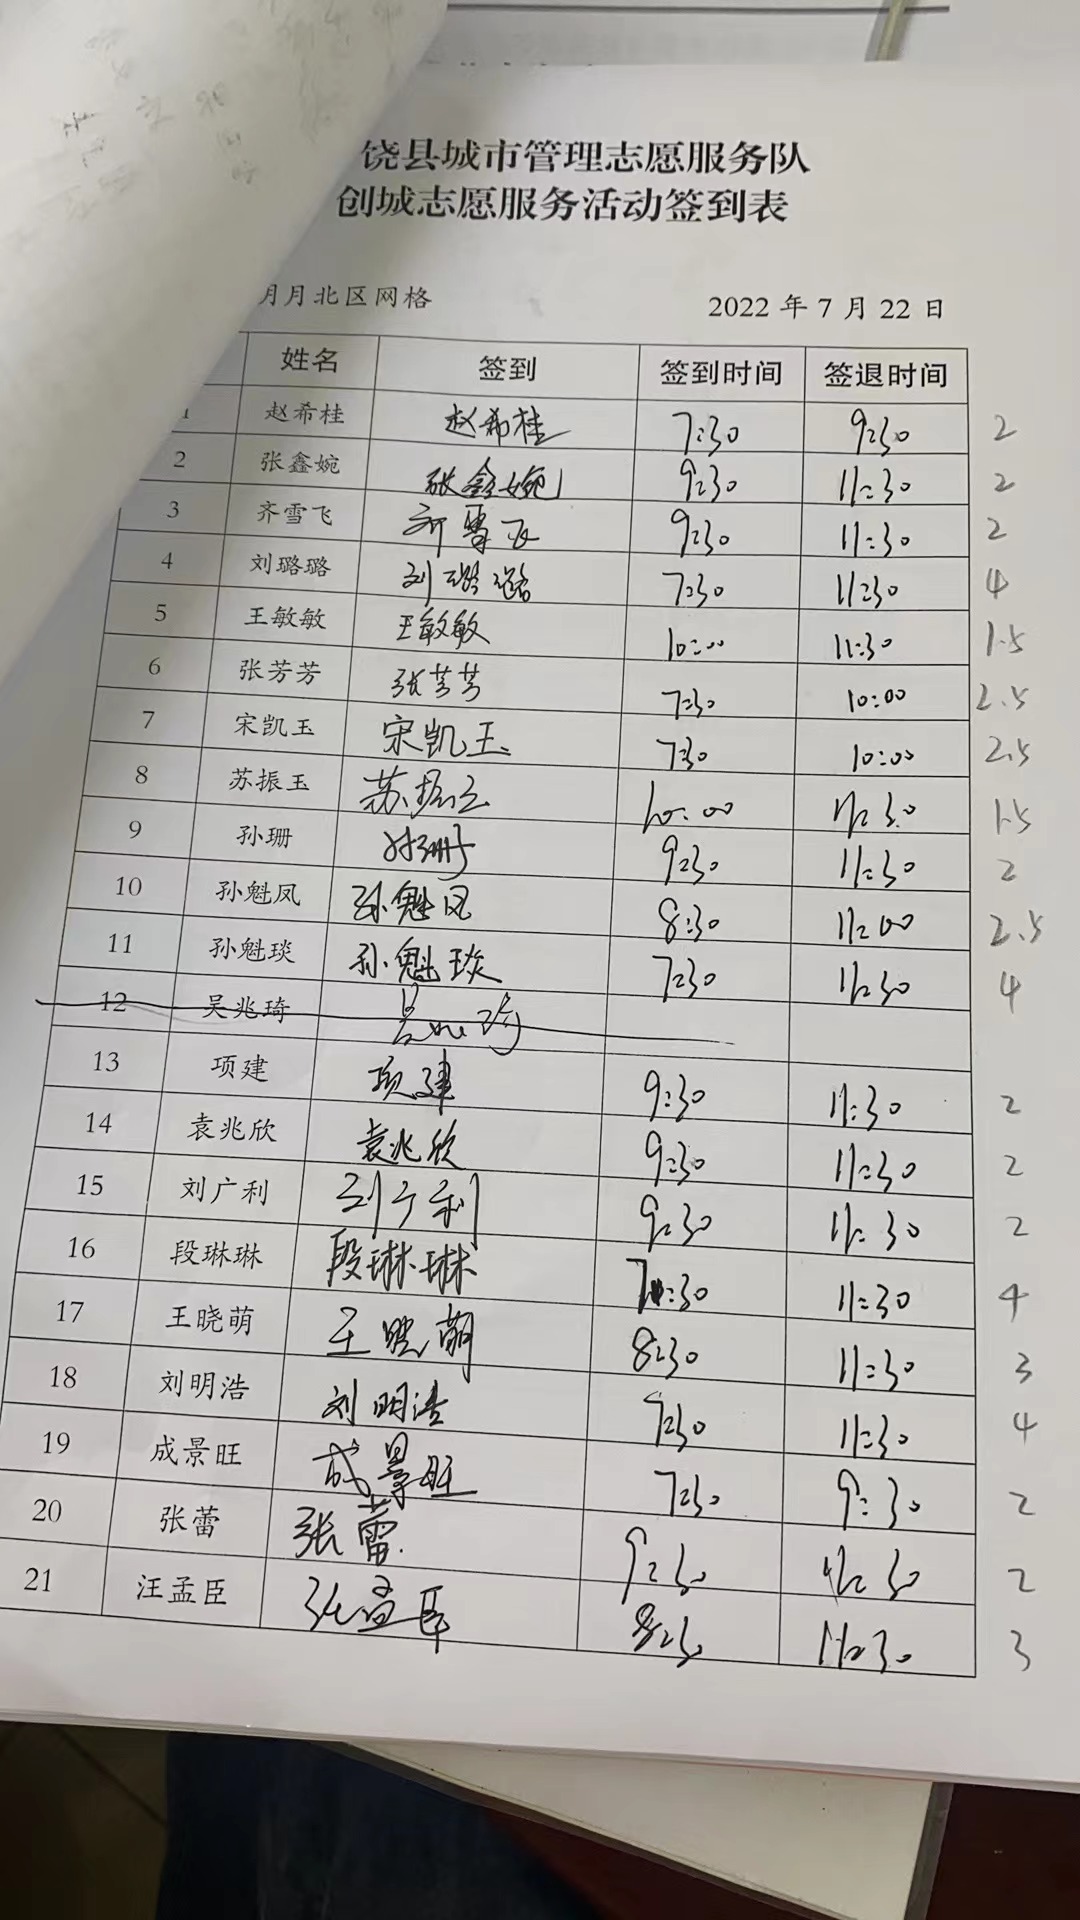 饶县城市管理志愿服务队
创城志愿服务活动签到表
月月北区网格 2022 年 7 月 22 日
姓名 签到 签到时间 签退时间
1 赵希桂 赵希桂 7:30 9:30 2
2 张鑫婉 张鑫婉 9:30 11:30 2
3 齐雪飞 齐雪飞 9:30 11:30 2
4 刘璐璐 刘璐璐 7:30 11:30 4
5 王敏敏 王敏敏 10:00 11:30 1.5
6 张芳芳 张芳芳 7:30 10:00 2.5
7 宋凯玉 宋凯玉 7:30 10:00 2.5
8 苏振玉 苏振玉 10:00 11:30 1.5
9 孙珊 孙珊 9:30 11:30 2
10 孙魁凤 孙魁凤 8:30 11:00 2.5
11 孙魁琰 孙魁琰 7:30 11:30 4
12 吴兆琦 吴兆琦
13 项建 项建 9:30 11:30 2
14 袁兆欣 袁兆欣 9:30 11:30 2
15 刘广利 刘广利 9:30 11:30 2
16 段琳琳 段琳琳 7:30 11:30 4
17 王晓萌 王晓萌 8:30 11:30 3
18 刘明浩 刘明浩 7:30 11:30 4
19 成景旺 成景旺 7:30 9:30 2
20 张蕾 张蕾 9:30 11:30 2
21 汪孟臣 汪孟臣 8:30 11:30 3